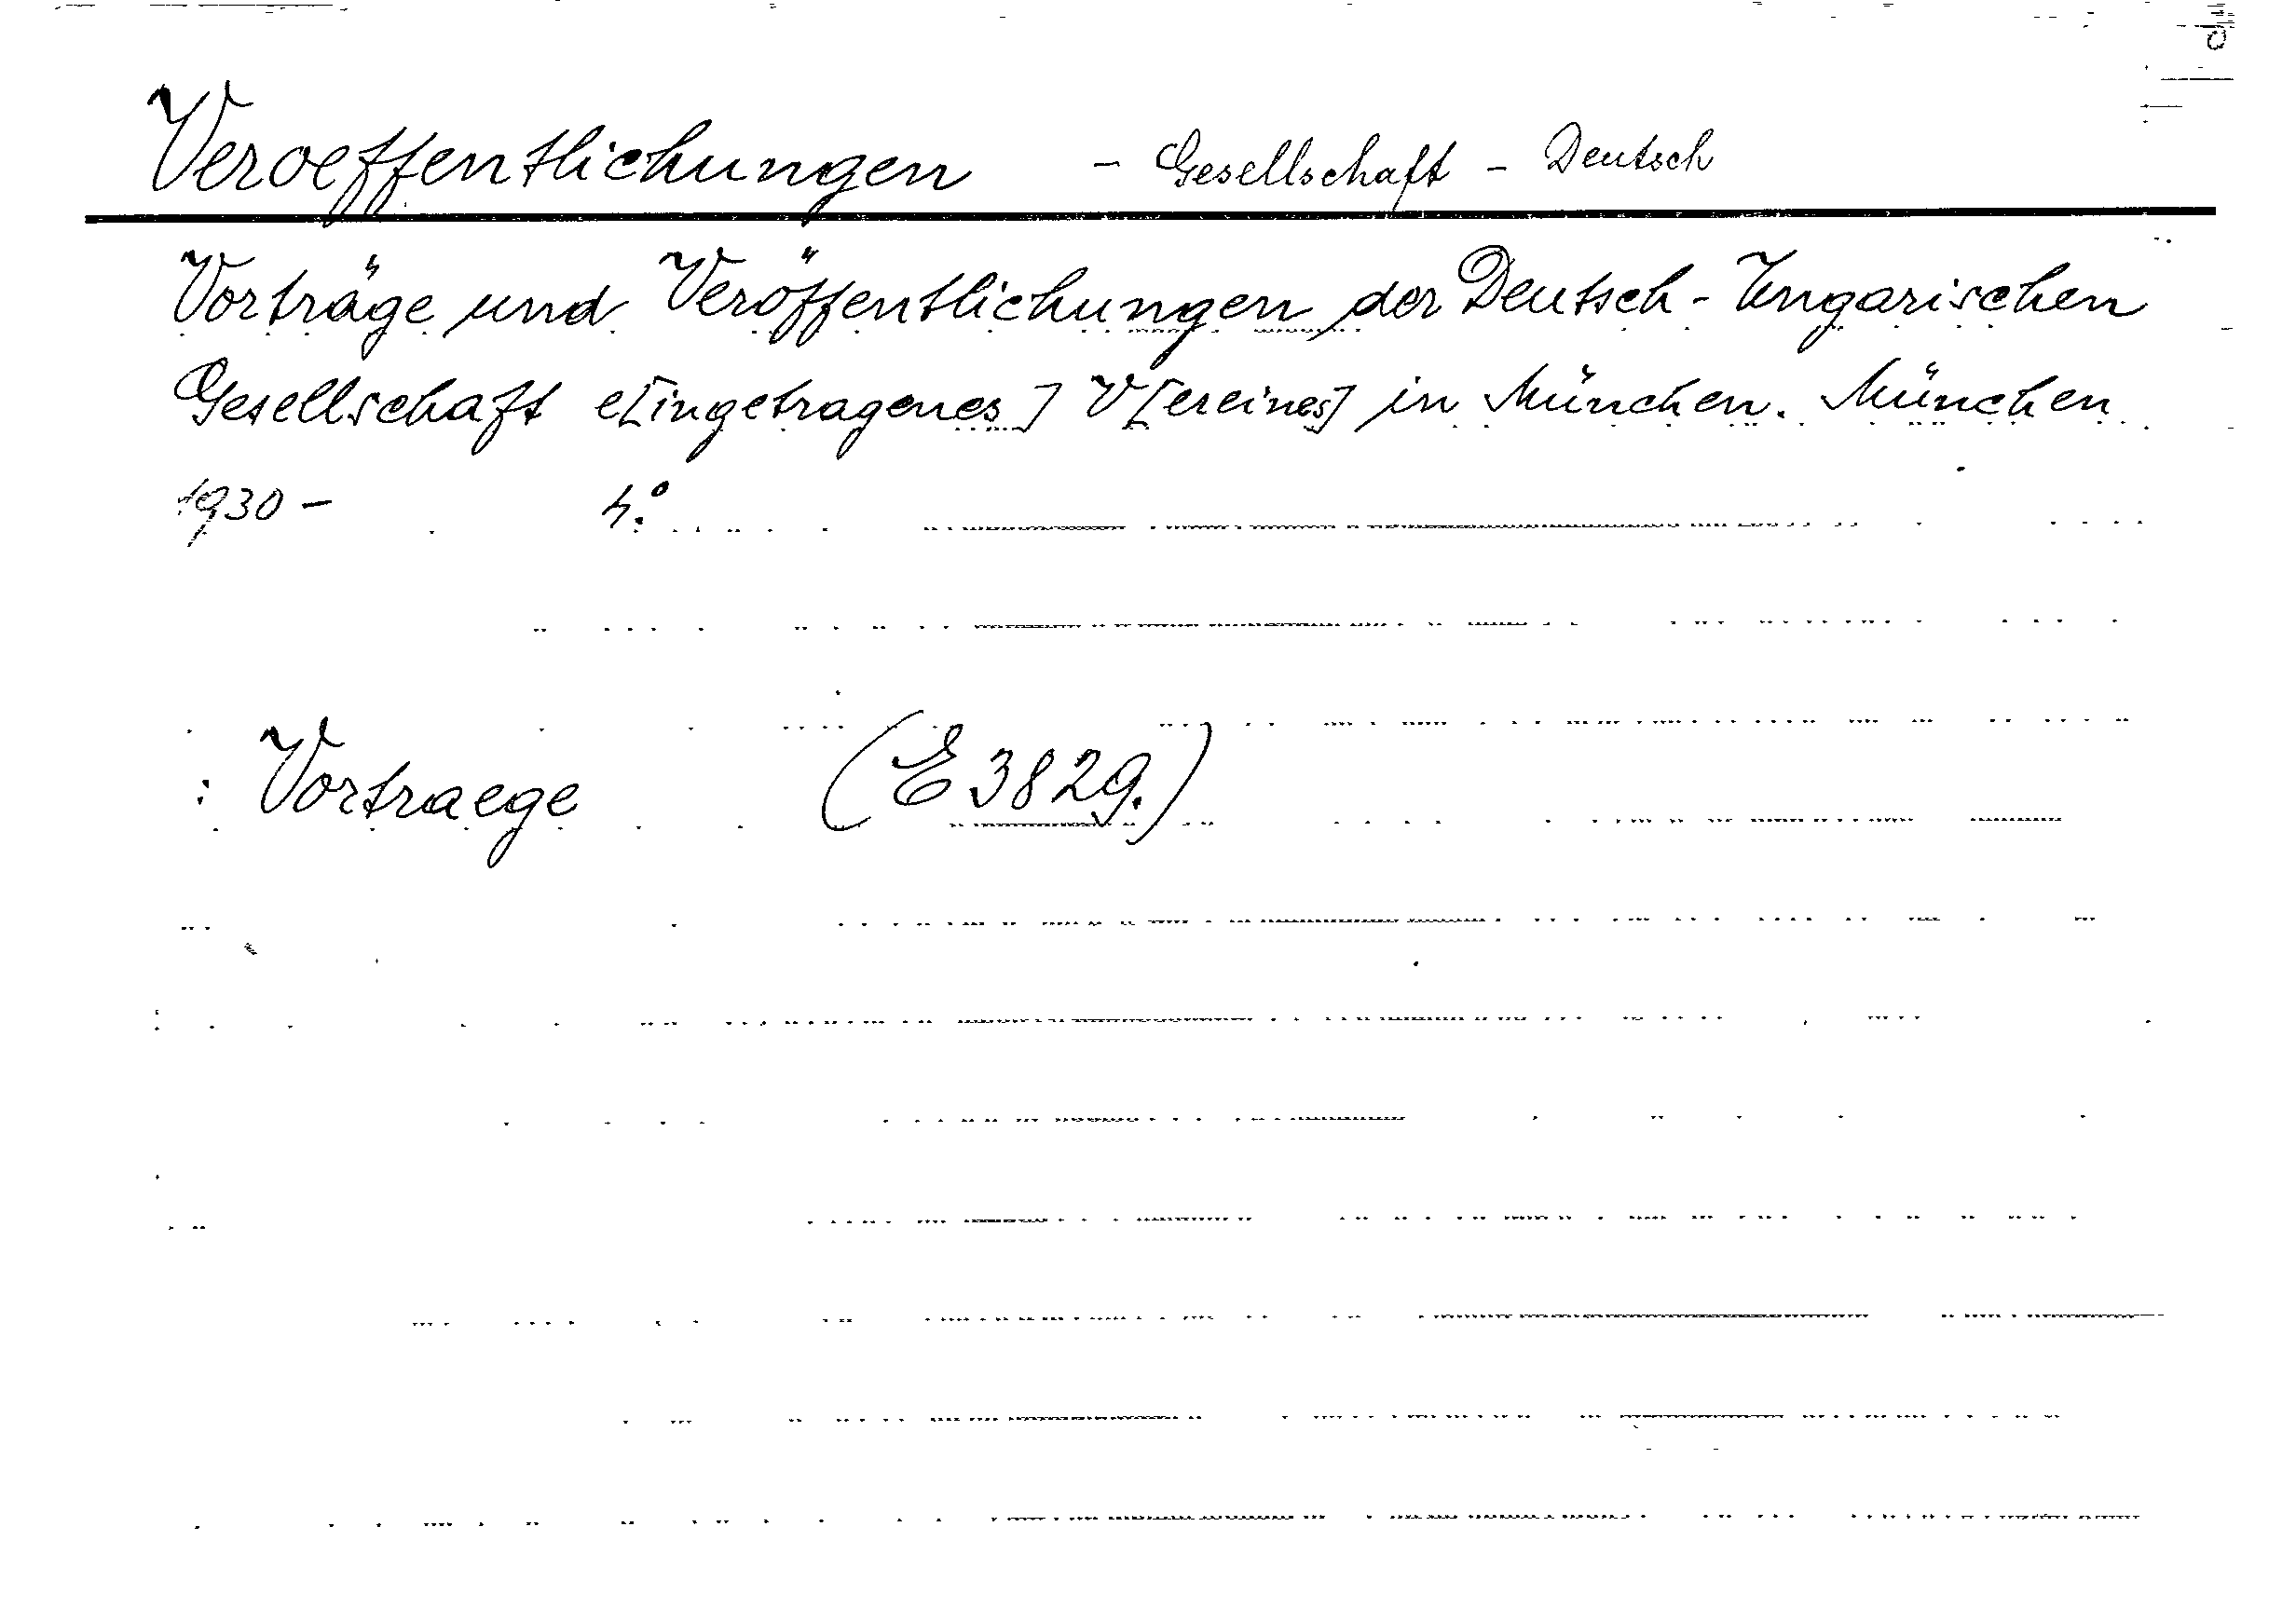 Veroeffentlichungen - Gesellschaft - Deutsch
Vorträge und Veröffentlichungen der Deutsch-Ungarischen
Gesellschaft e[ingetragenes] V[ereines] in München. München
1930- 4.°
: Vortraege (E 3829.)